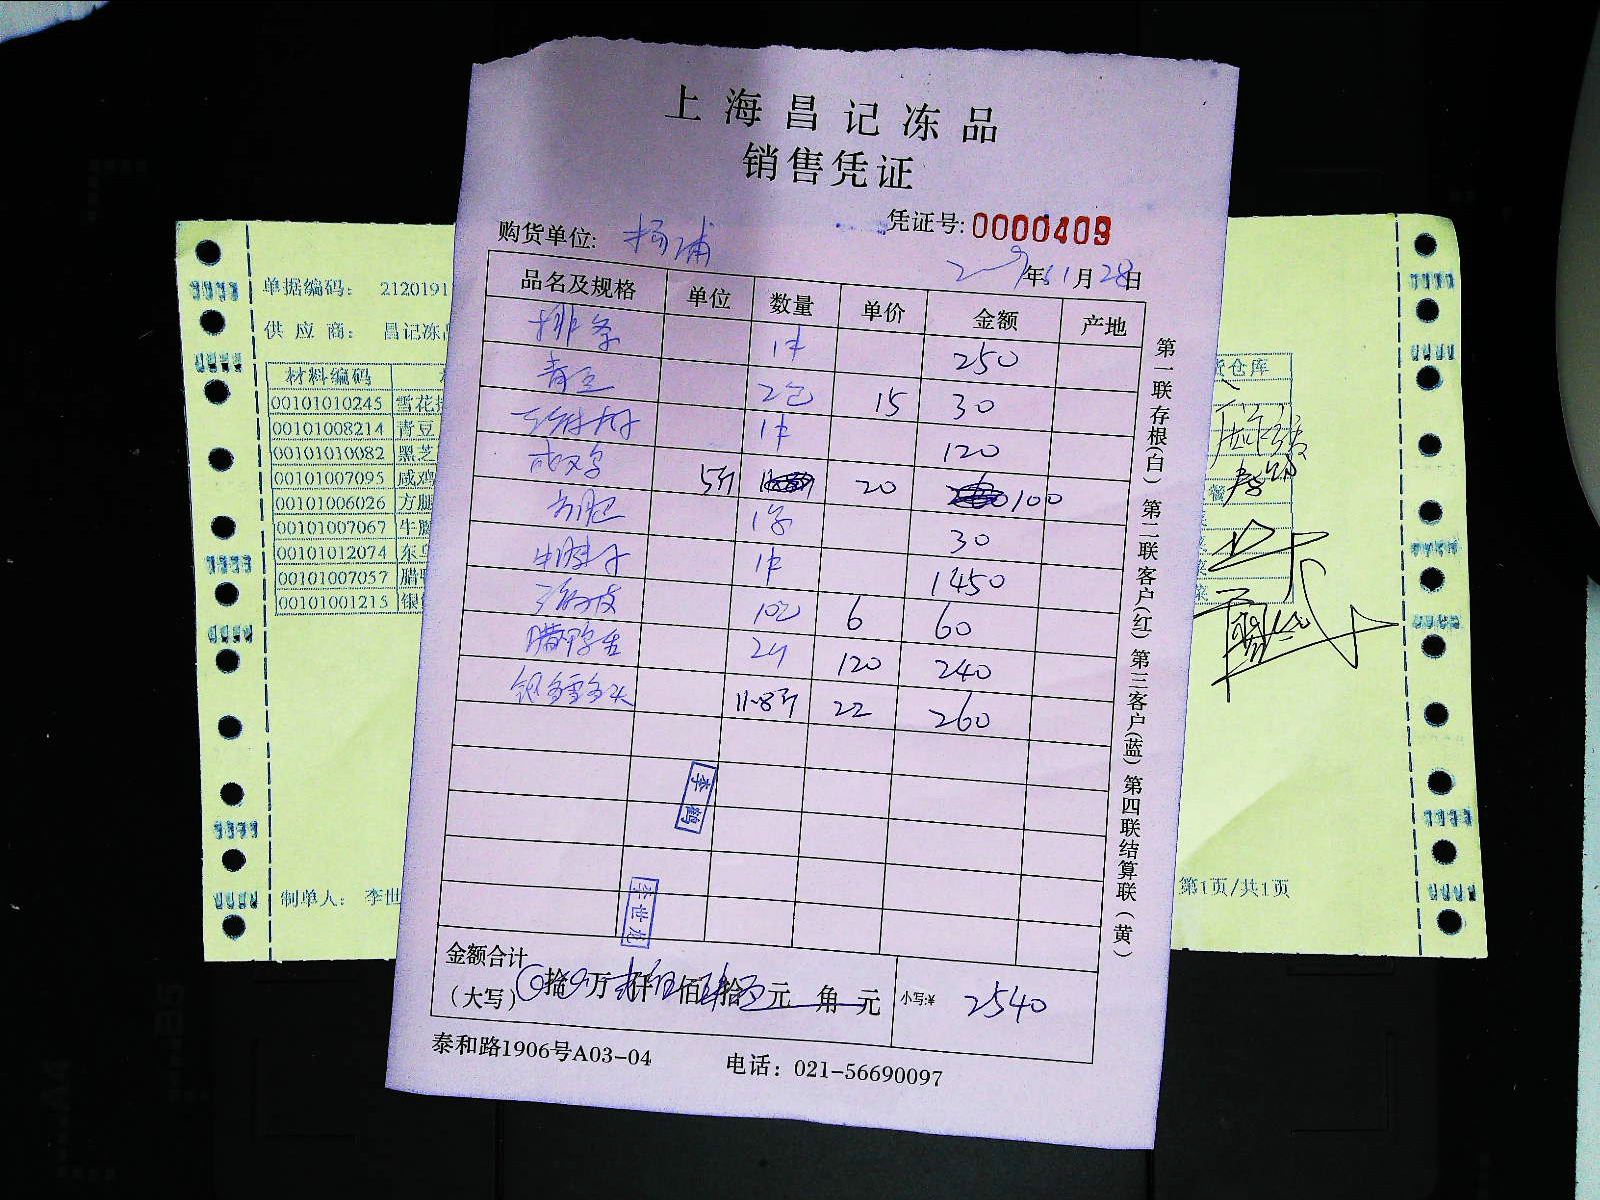 上海昌记冻品
销售凭证
凭证号: 0000409
购货单位: 杨浦
年11月28日
品名及规格 单位 数量 单价 金额 产地
排条 1件 250
青豆 2包 15 30
1件 120
咸双鸡 5斤 20 100
方腿 1条 30
牛腱子 1件 1450
10包 6 60
腊鸭舌 2斤 120 240
银鳕鱼头 11.8斤 22 260
李鹤
李世龙
金额合计
(大写) 拾 万 仟 佰 拾 元 角 元 小写:¥ 2540
泰和路1906号A03-04 电话: 021-56690097
第一联存根(白) 第二联客户(红) 第三客户(蓝) 第四联结算联(黄)
单据编码: 2120191
供应商: 昌记冻
材料编码
00101010245 雪花
00101008214 青豆
00101010082 黑芝
00101007095 咸鸡
00101006026 方腿
00101007067 牛腱
00101012074 东
00101007057 腊鸭
00101001215 银
制单人: 李世
仓库
第1页/共1页